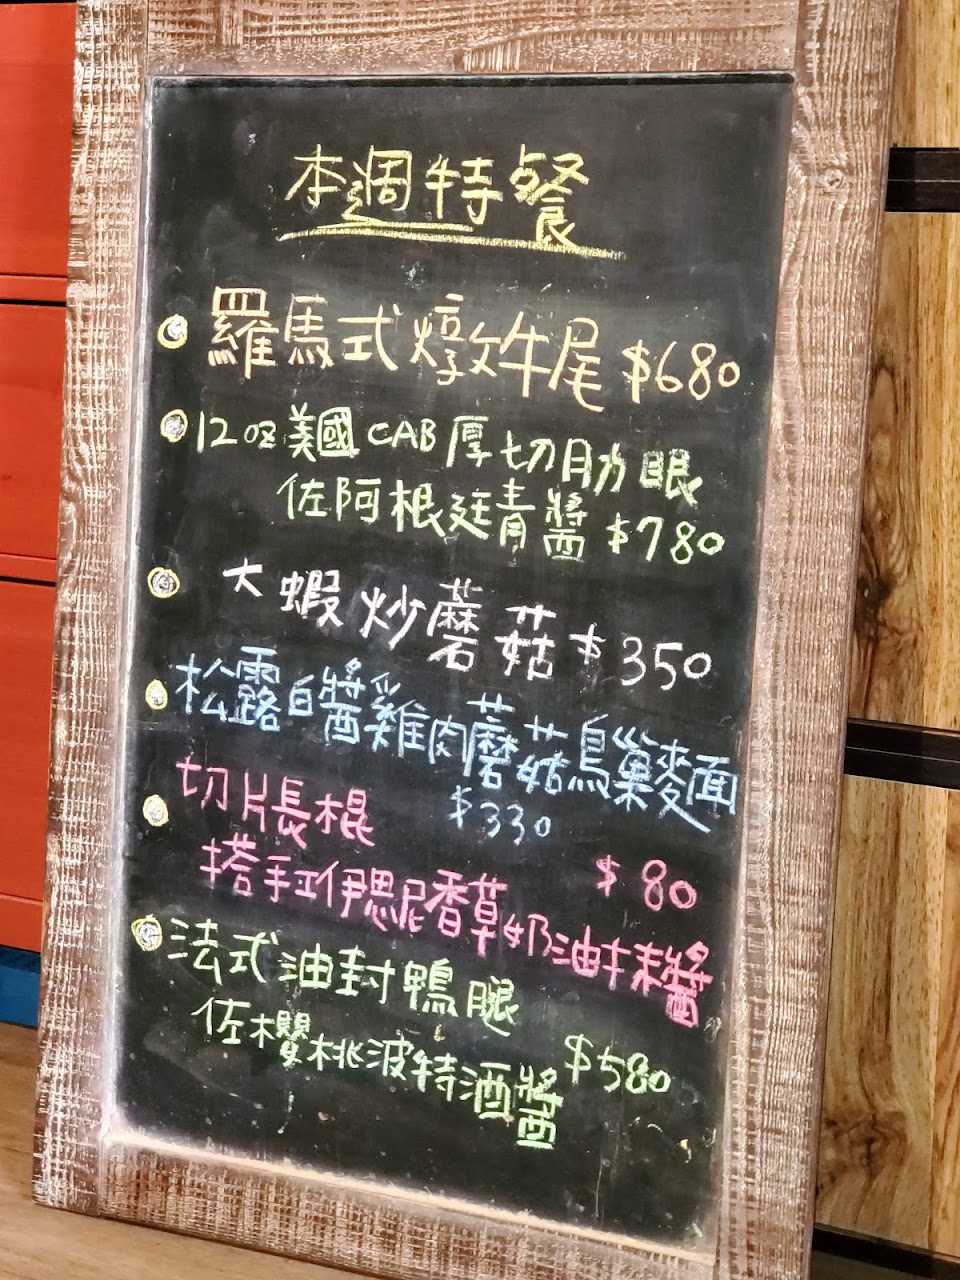 本週特餐
羅馬式燉牛尾 $680
12oz美國CAB厚切肋眼
佐阿根廷青醬 $780
大蝦炒蘑菇 $350
松露白醬雞肉蘑菇鳥巢麥面
$330
切片長棍 $80
搭手工伊思尼香草奶油抹醬
法式油封鴨腿
佐櫻桃波特酒醬 $580